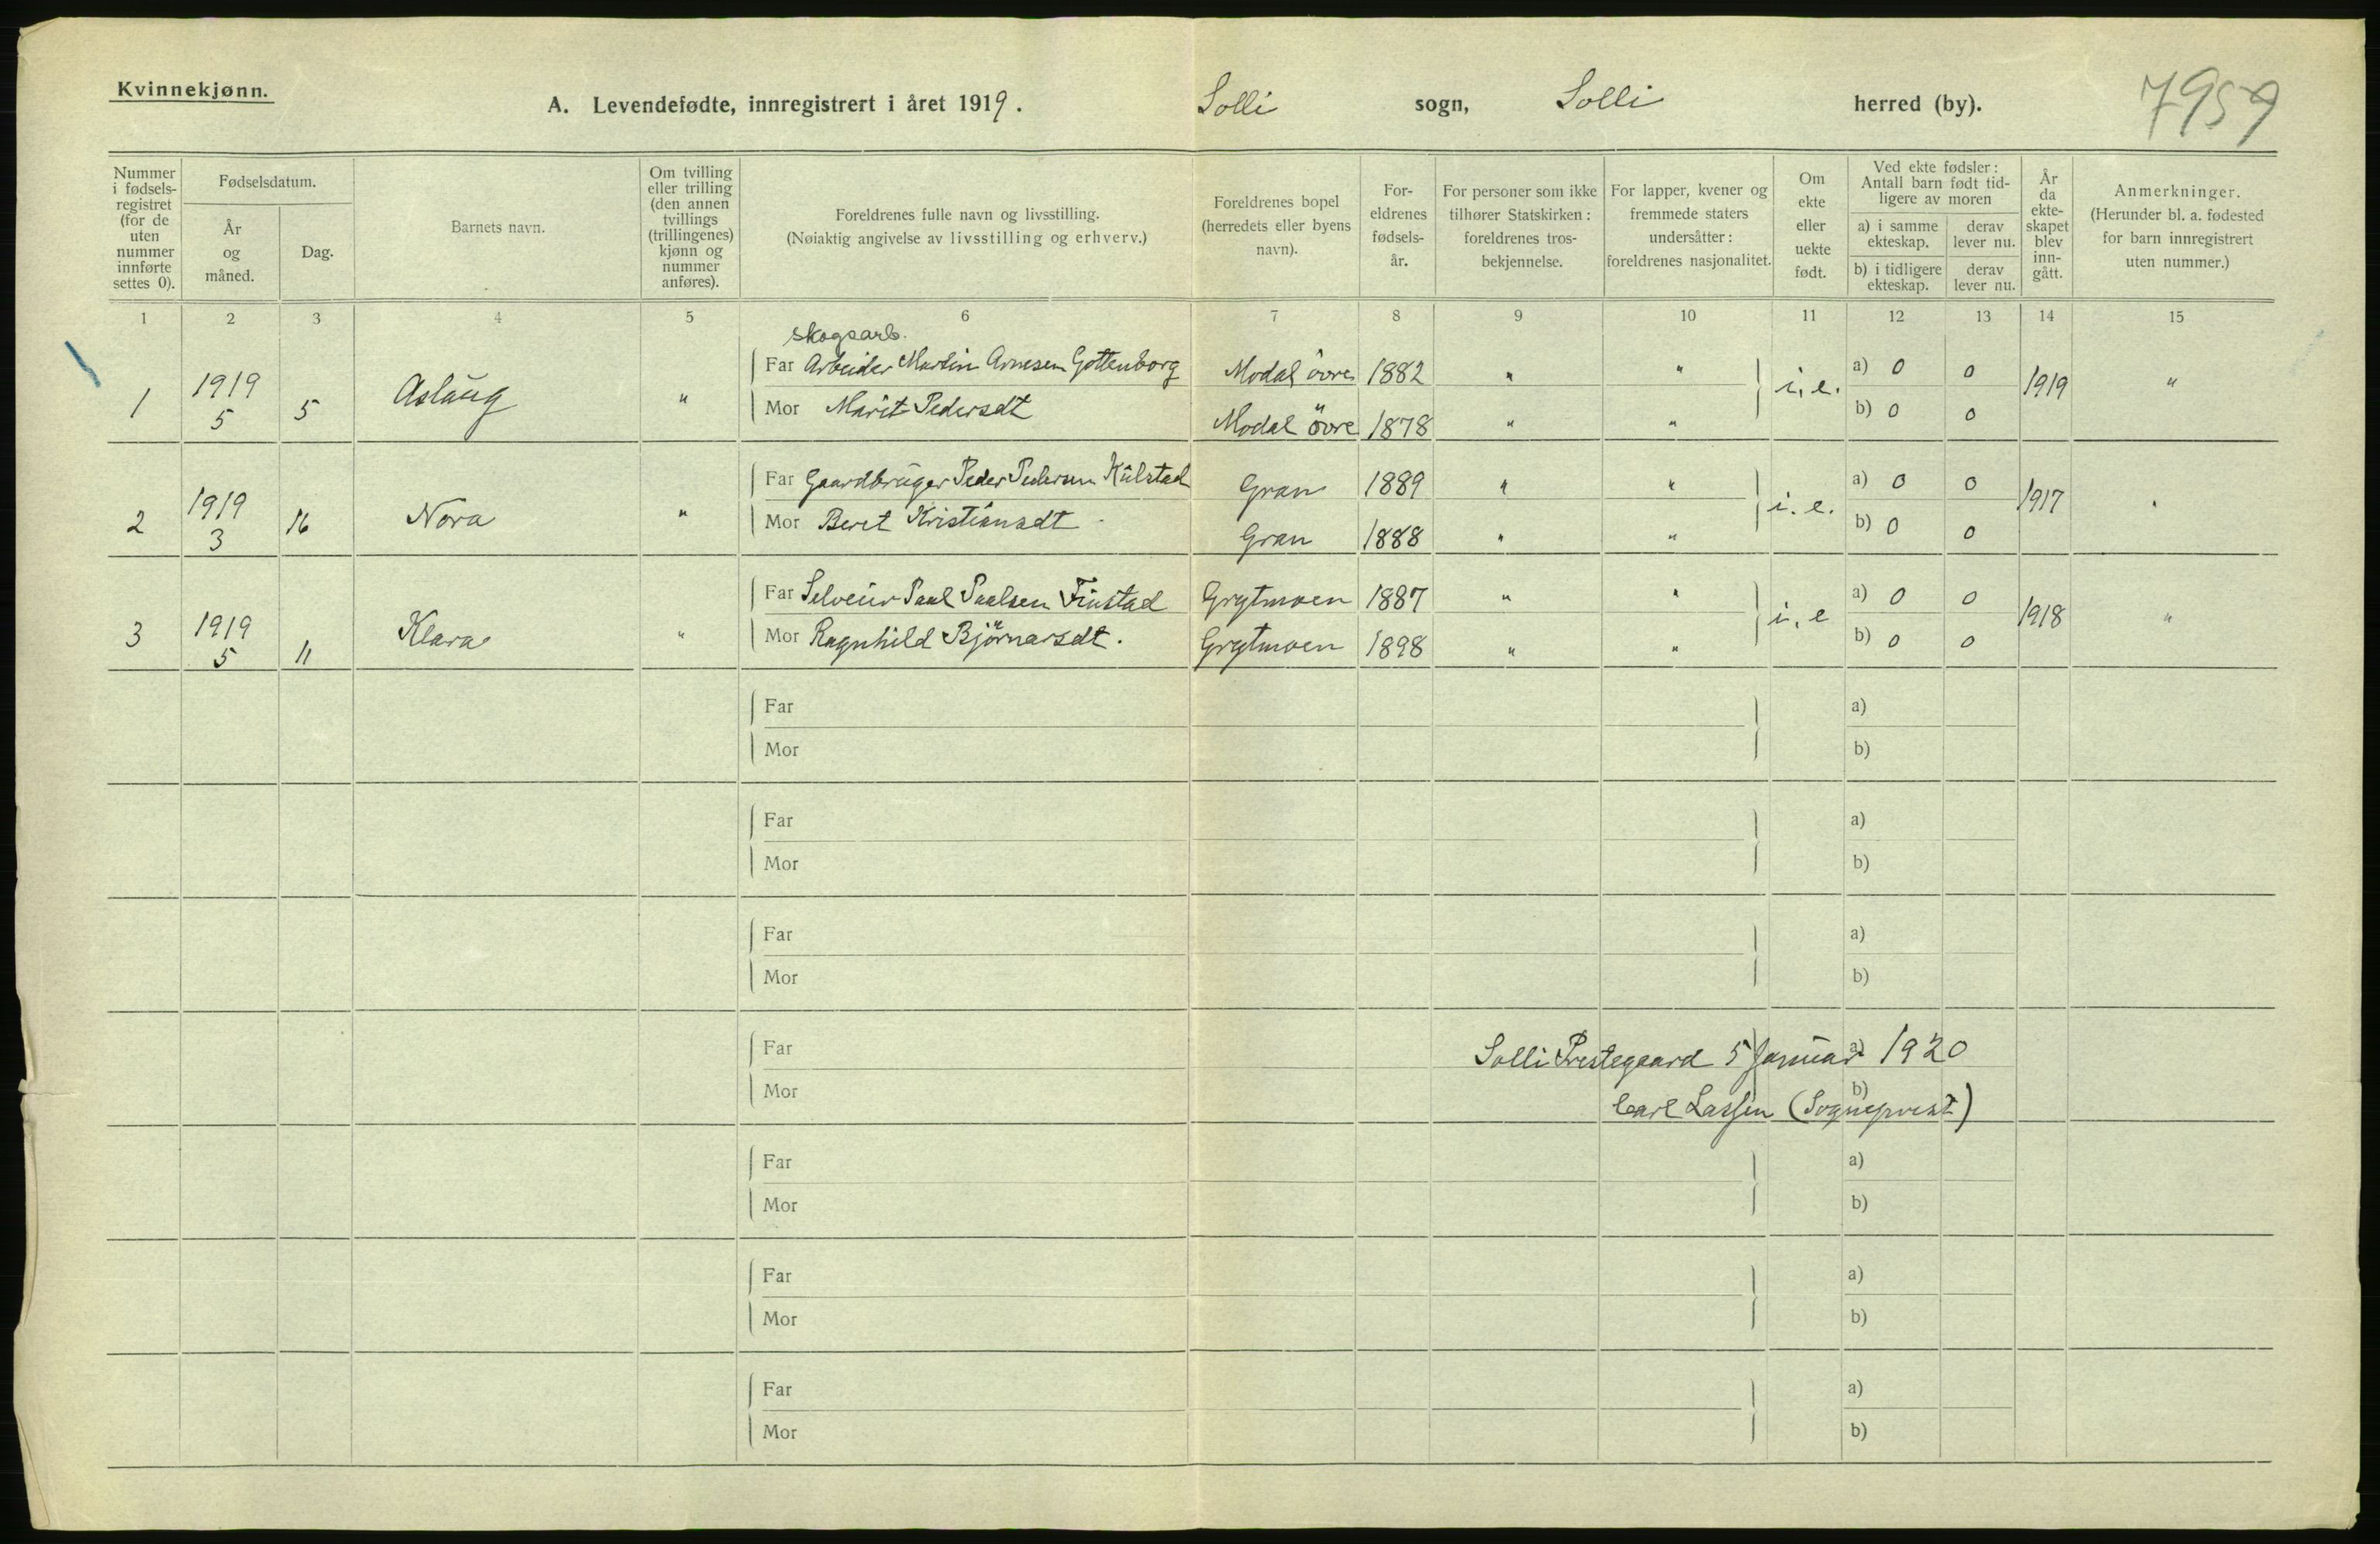 Kvinnekjønn.
A. Levendefødte, innregistrert i året 1919. Solli sogn, Solli herred (by). 7959
Nummer i fødsels-registret (for de uten nummer innførte settes 0).
Fødselsdatum.
År og måned.
Dag.
Barnets navn.
Om tvilling eller trilling (den annen tvillings (trillingenes) kjønn og nummer anføres).
Foreldrenes fulle navn og livsstilling.
(Nøiaktig angivelse av livsstilling og erhverv.)
Foreldrenes bopel (herredets eller byens navn).
For-eldrenes fødsels-år.
For personer som ikke tilhører Statskirken: foreldrenes tros-bekjennelse.
For lapper, kvener og fremmede staters undersåtter: foreldrenes nasjonalitet.
Om ekte eller uekte født.
Ved ekte fødsler: Antall barn født tid-ligere av moren
a) i samme ekteskap.
derav lever nu.
b) i tidligere ekteskap.
derav lever nu.
År da ekte-skapet blev inn-gått.
Anmerkninger.
(Herunder bl. a. fødested for barn innregistrert uten nummer.)
1 2 3 4 5 6 7 8 9 10 11 12 13 14 15
skogsarb.
1 1919 5 5 Aslaug " Far Arbeider Martin Arnesen Gottenborg Modal övre 1882 " " i. e. a) 0 0 1919 "
Mor Marit Pedersdt Modal övre 1878 " " b) 0 0
2 1919 3 16 Nora " Far Gaardbruger Peder Pedersen Kulstad Gran 1889 " " i. e. a) 0 0 1917 "
Mor Beret Kristiansdt Gran 1888 " " b) 0 0
3 1919 5 11 Klara " Far Selveier Paul Paulsen Finstad Grytmoen 1887 " " i. e a) 0 0 1918 "
Mor Ragnhild Björnarsdt. Grytmoen 1898 " " b) 0 0
Far a)
Mor b)
Far a)
Mor b)
Far a)
Mor b)
Far Solli Prestegaard 5 Januar a) 1920
Mor Carl Lassen (Sogneprest) b)
Far a)
Mor b)
Far a)
Mor b)
Far a)
Mor b)